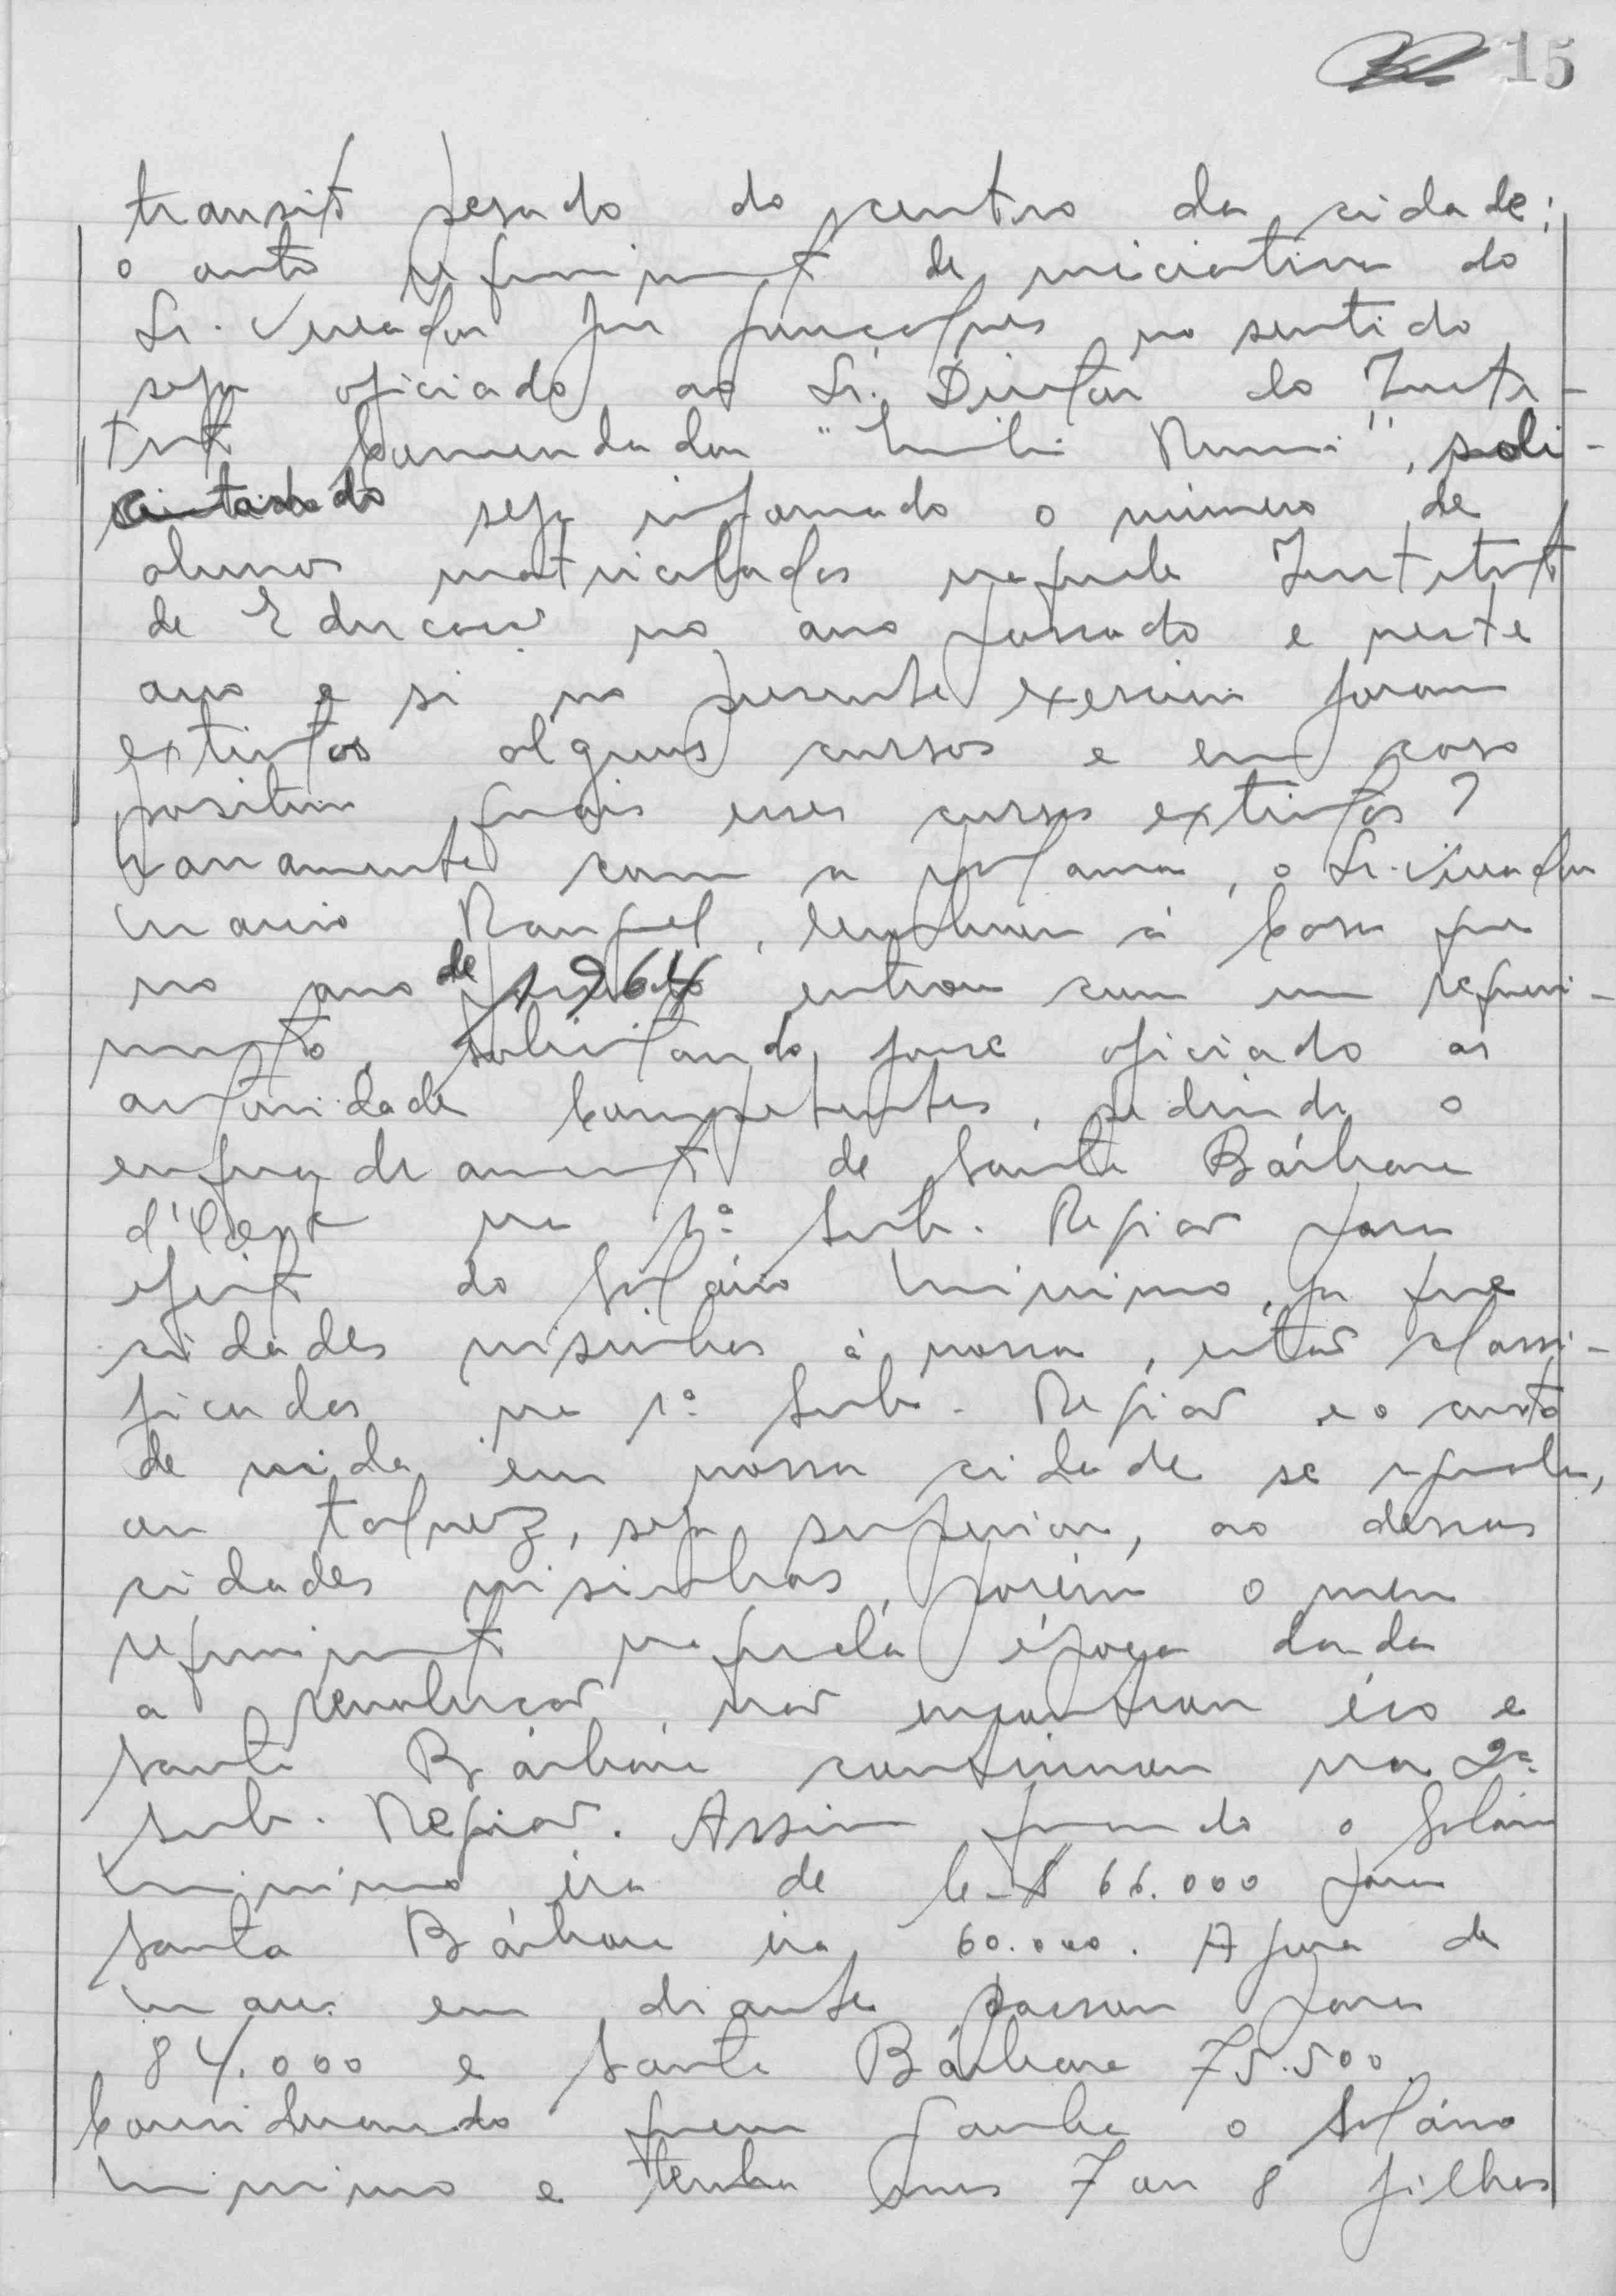 15
transito pesado do centro da cidade;
o outro requerimento de iniciativa do
Sr. Vereador
seja oficiado ao Sr. Diretor do Insti-
tuto Comendador " Romi", soli-
citando seja informado o número de
alunos matriculados naquele Instituto
de Educação no ano passado e neste
ano e si no presente exercicio foram
extintos alguns cursos e em caso
positivo quais esses cursos extintos?
Novamente com a palavra, o Sr. Vereador
Mario Rangel, lembrou à Casa que
no ano de 1964 entrou com um requeri-
mento, solicitando fosse oficiado as
autoridades Competentes, pedindo o
enquadramento de Santa Bárbara
d'Oeste na 1ª Sub. Região para
efeito do Salário Minimo, ja que
cidades visinhas à nossa, estão classi-
ficadas na 1ª Sub. Região e o custo
de vida em nossa cidade se iguala,
ou talvez, seja superior, ao dessas
cidades visinhas, porém o meu
requerimento naquela época dada
a revolução, não encontrou éco e
Santa Bárbara continuou na 2ª
Sub. Região. Assim quando o Salário
Minimo era de Cr$ 66.000 para
Santa Bárbara era 60.000. Agora de
Março em diante passou para
84.000 e Santa Bárbara 75.500.
Considerando quem ganha o Salário
Minimo e tenha seus 7 ou 8 filhos